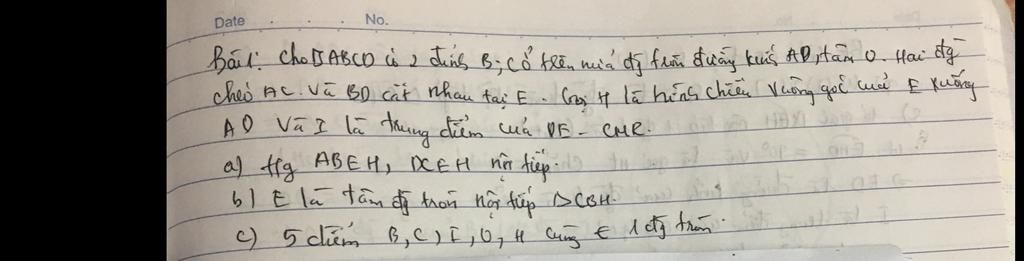 Date No.
Bài 1: Cho ◊ABCD có 2 đỉnh B; C ở trên nửa đg tròn đường kính AD, tâm O. Hai đg
chéo AC và BD cắt nhau tại E. Gọi H là hình chiếu vuông góc của E xuống
AD và I là trung điểm của DE - CMR.
a) Tfg ABEH, DCEH nội tiếp.
b) E là tâm đg tròn nội tiếp ΔCBH.
c) 5 điểm B, C, I, O, H cùng ∈ 1 đg tròn.